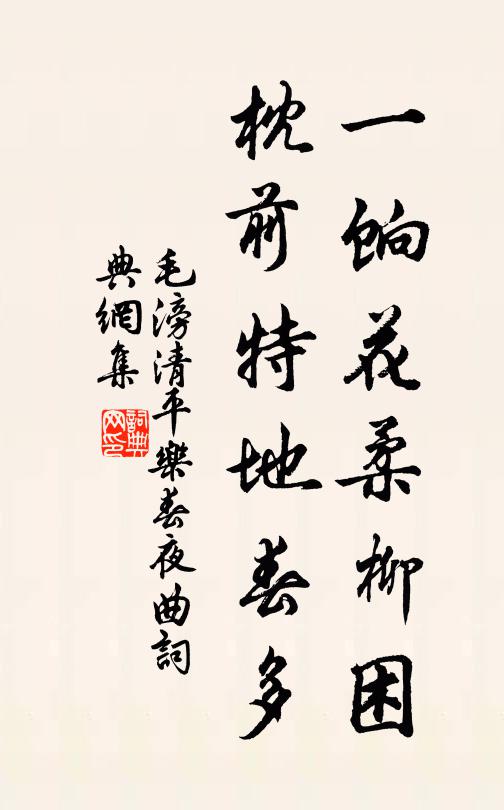 一餉花柔柳困
枕前特地春多
毛滂清平樂春夜曲詞
典網集
詞典
网印